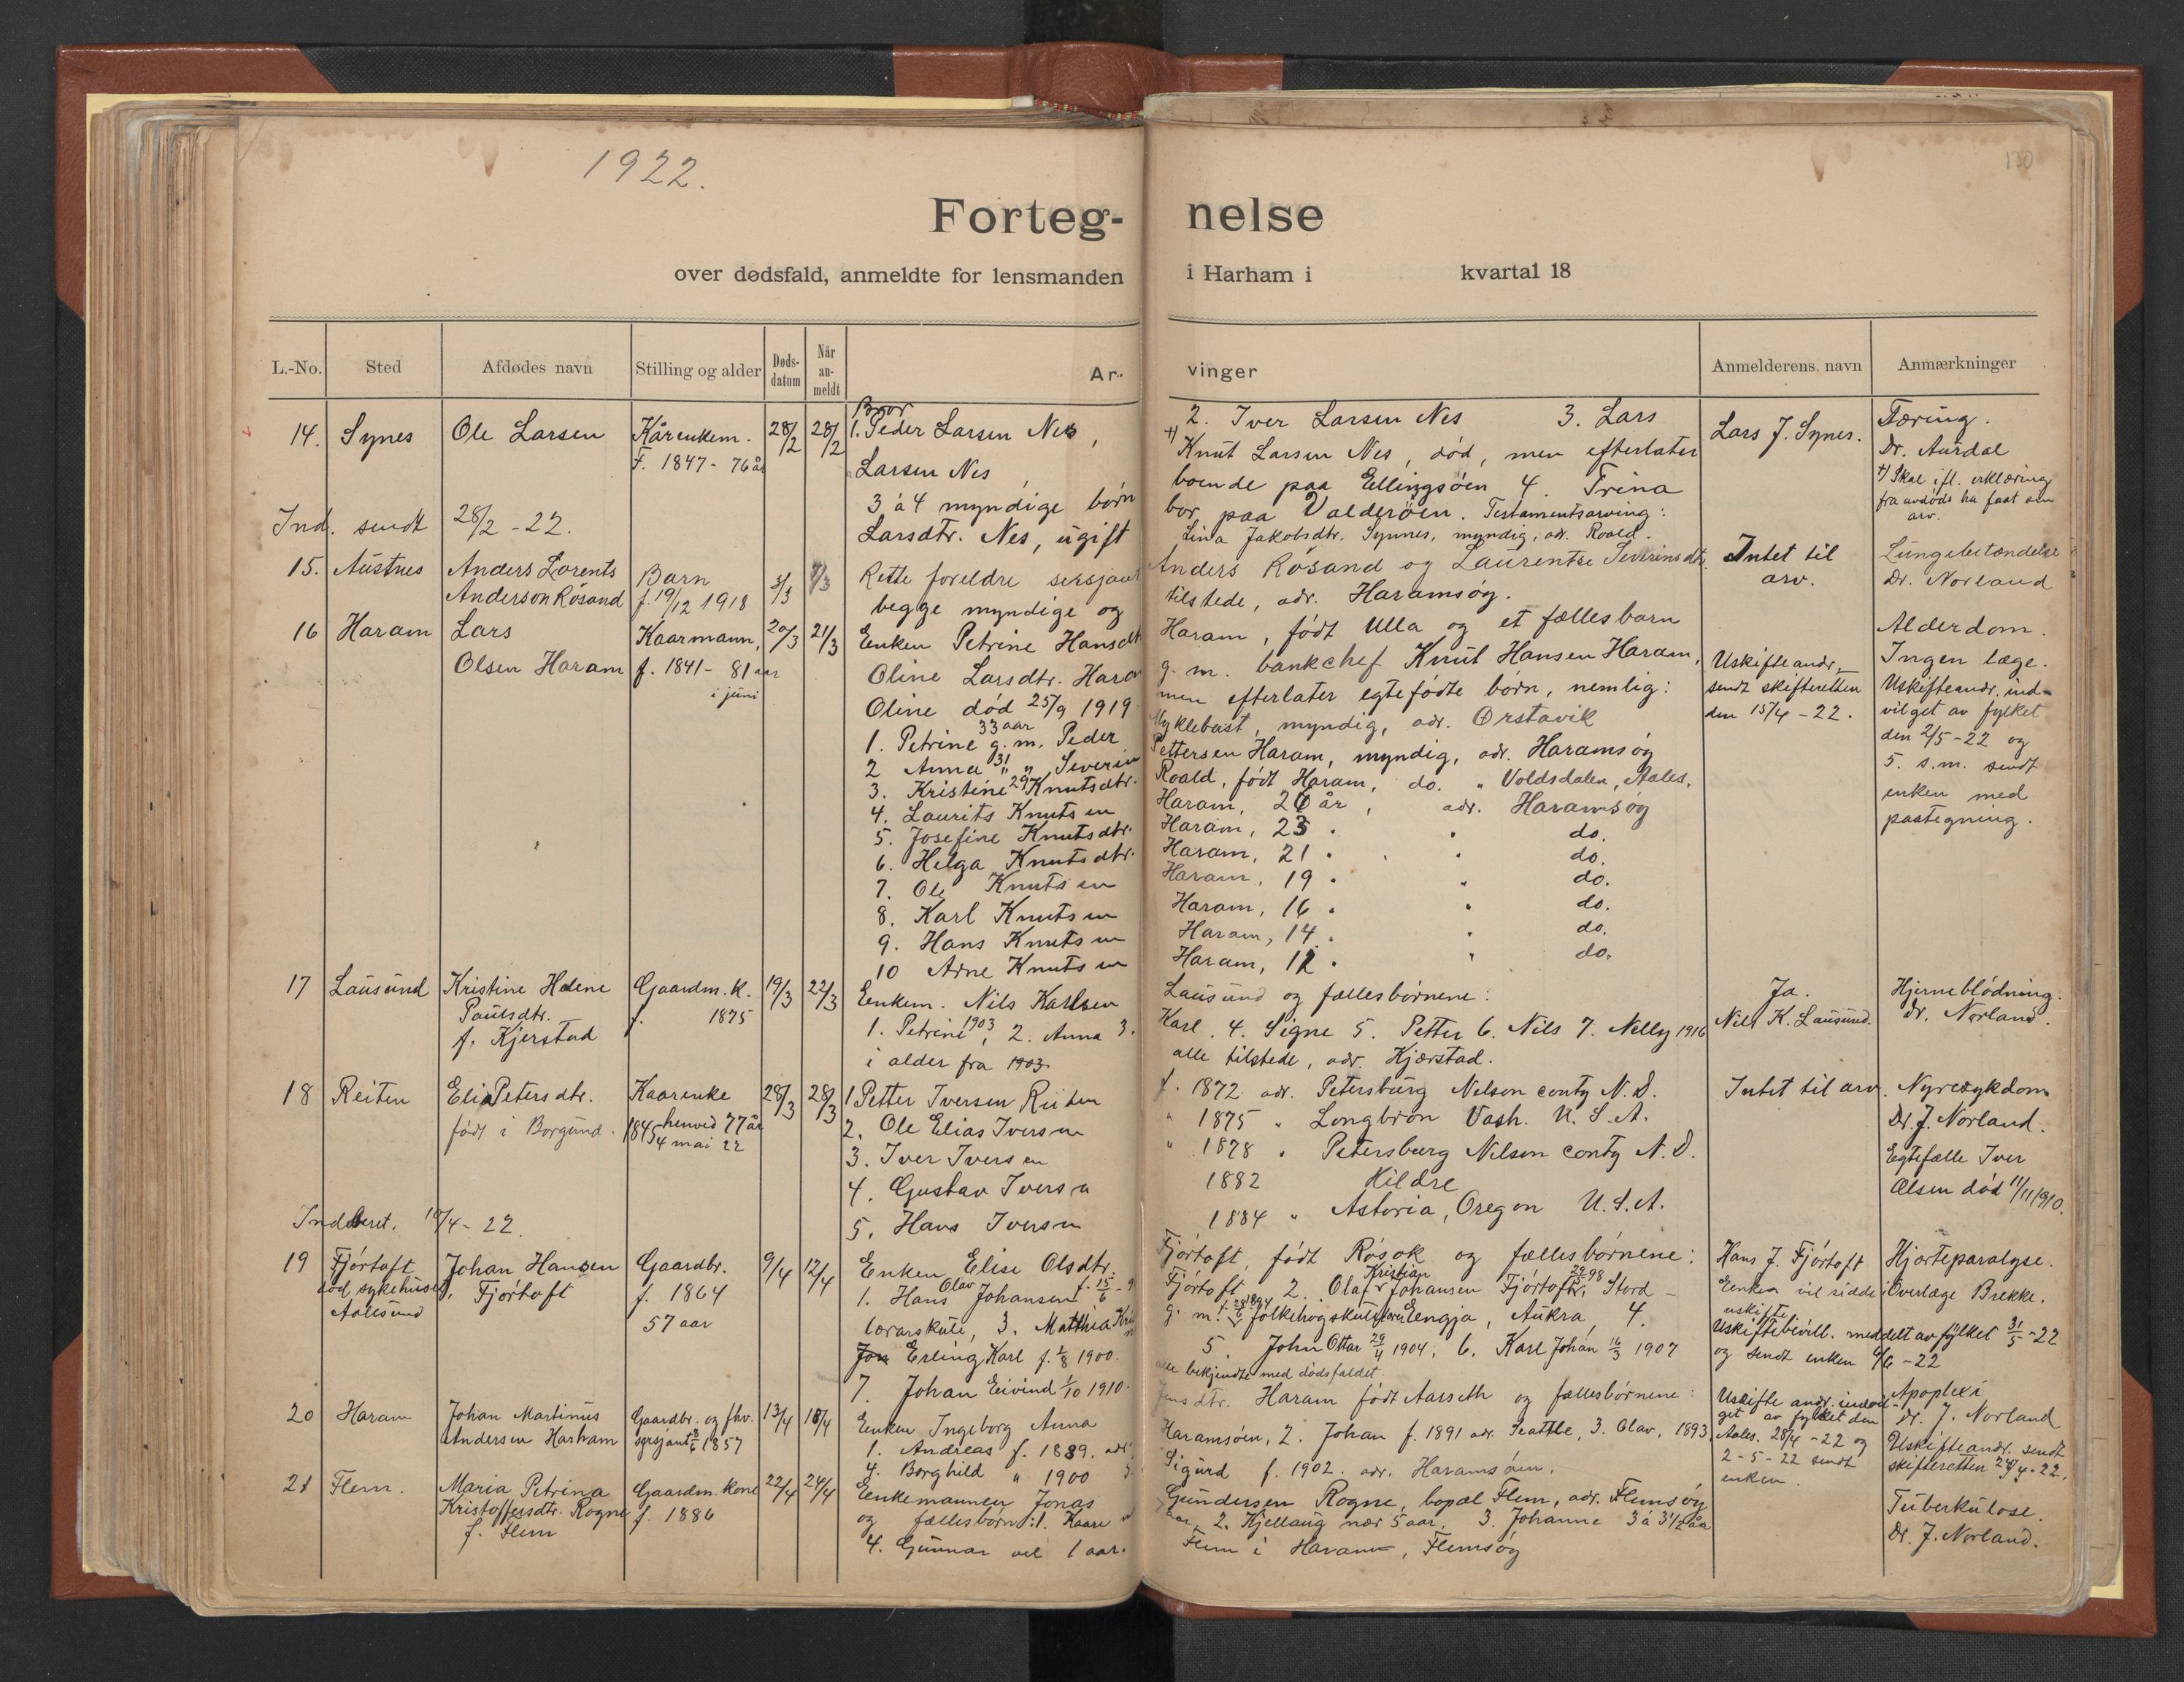 1922.
130
Forteg- nelse
over dødsfald, anmeldte for lensmanden i Harham i kvartal 18
L.-No. Sted Afdødes navn Stilling og alder Døds-datum Når an-meldt Ar- vinger Anmelderens navn Anmærkninger
14. Synes Ole Larsen Kårenkem. 28/2 28/2 Bror 1. Peder Larsen Nes, 2. Iver Larsen Nes 3. Lars Lars J. Synes. Tæring.
F. 1847 - 76 år Larsen Nes, +) Knut Larsen Nes, død, men efterlater Dr. Aurdal
3 à 4 myndige børn boende paa Ellingsöen 4. Trina +) Skal ifl. erklæring
Ind. sendt 28/2 - 22. Larsdtr. Nes, ugift bor paa Valderöen. Testamentsarving: fra avdöde ha faat sin
Lina Jakobsdtr. Synnes, myndig, adr. Roald. arv.
15. Austnes Anders Lorents Barn 3/3 7/3 Rette foreldre sersjant Anders Rösand og Laurentse Severinsdtr. Intet til Lungebetændelse
Anderson Rösand f. 19/12 1918 begge myndige og tilstede, adr. Haramsöy. arv. Dr. Norland
16 Haram Lars Kaarmann, 20/3 21/3 Enken Petrine Hansdt Haram, födt Ulla og et fællesbarn Alderdom.
Olsen Haram f. 1841 - 81 aar Oline Larsdtr. Hara g. m. bankchef Knut Hansen Haram, Uskifteandr. Ingen læge.
i juni Oline död 25/9 1919 men efterlater egtefödte börn, nemlig: sendt skifteretten Uskifteandr. ind-
33 aar 1. Petrine g. m. Peder Myklebust, myndig, adr. Ørstavik den 15/4 - 22. vilget av fylket
2 Anna 31 " " Severin Pettersen Haram, myndig, adr. Haramsöy den 2/5 - 22 og
3. Kristine 29 Knutsdtr. Roald, födt Haram, do. " Voldsdalen, Aales. 5. s.m. sendt
4. Laurits Knutsen Haram, 26 år, adr. Haramsöy enken med
5. Josefine Knutsdtr. Haram, 23 " " do. paategning.
6. Helga Knutsdtr. Haram, 21 " " do.
7. Ole Knutsen Haram, 19 " " do.
8. Karl Knutsen Haram, 16 " " do.
9. Hans Knutsen Haram, 14 " " do.
10 Arne Knutsen Haram, 12 " " do.
17 Lausund Kristine Helene Gaardm. k. 19/3 22/3 Enkem. Nils Karlsen Lausund og fællesbörnene: Ja. Hjerneblödning.
Paulsdtr. f. 1875 1. Petrine 1903, 2. Anna 3. Karl 4. Signe 5. Petter 6. Nils 7. Nelly 1916 Nils K. Lausund. dr. Norland.
f. Kjerstad i alder fra 1903. alle tilstede, adr. Kjærstad.
18 Reiten Elia Petersdtr. Kaarenke 28/3 28/3 1 Petter Iversen Reiten f. 1872 adr. Petersburg Nelson conty N.D. Intet til arv. Nyresykdom
födt i Borgund. 1845 henved 77 år 4 mai 22 2. Ole Elias Iversen " 1875 " Longbron Vash. U.S.A. Dr. J. Norland.
3. Iver Iversen " 1878 " Petersburg Nelson conty N.D. Egtefælle Iver
4. Gustav Iversen 1882 Hildre Olsen död 11/11 1910.
Indberet. 10/4 - 22. 5. Hans Iversen 1884 " Astoria, Oregon U.S.A.
19 Fjörtoft Johan Hansen Gaardbr. 9/4 12/4 Enken Elise Olsdtr. Fjörtoft, födt Rösok og fællesbörnene: Hans J. Fjörtoft Hjerteparalyse.
död sykehuset Fjörtoft f. 1864 1. Hans Olav Johansen f. 15/6 Fjörtoft 2. Olaf Kristian Johansen Fjörtoft, 98 Stord- Enken vil sidde i Overlæge Brekke.
Aalesund 57 aar lærarskule, 3. Matthea g. m. folkehögskule Elengja, Aukra, 4. uskifte
Jon Erling Karl f. 1/8 1900. 5. John Ottar 29/4 1904. 6. Karl Johan 16/3 1907 Uskiftebevill. meddelt av fylket 31/5 - 22
7. Johan Eivind 1/10 1910. alle bekjendte med dödsfaldet. og sendt enken 6/6 - 22
20 Haram Johan Martinus Gaardbr. og fhv. 13/4 18/4 Enken Ingeborg Anna Jensdtr. Haram födt Aarseth og fællesbörnene: Uskifte andr. indvil- Apoplexi
Andersen Harham sersjant 1857 1. Andreas f. 1889. adr. Haramsöen, 2. Johan f. 1891 adr. Seattle, 3. Olav, 1893, get av fylket den Dr. J. Norland
4. Borghild " 1900 Sigurd f. 1902. adr. Haramsöen. Aales. 28/4 - 22 og Uskifteandr. sendt
2 - 5 - 22 sendt skifteretten 24/4 - 22.
enken
21 Flem. Maria Petrina Gaardm. kone 22/4 24/4 Enkemannen Jonas Gundersen Rogne, bopæl Flem, adr. Flemsöy Tuberkulose.
Kristoffersdtr. Rogne f. 1886 og fællesbörn: 1. Kaare aar, 2. Kjellaug nær 5 aar, 3. Johanne 3 à 3 1/2 år Dr. J. Norland.
f. Flem 4. Gunnar vel 1 aar. Flem i Haram, Flemsöy